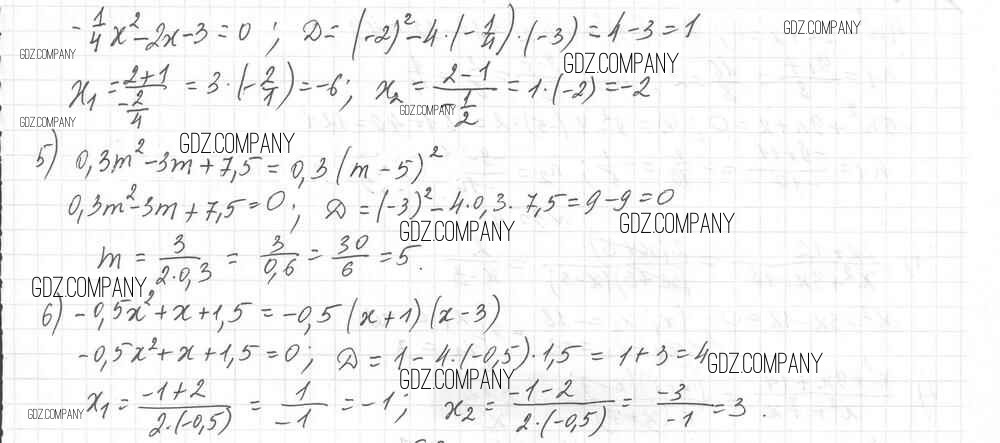 -1/4x² - 2x - 3 = 0 ; D = (-2)² - 4·(-1/4)·(-3) = 4 - 3 = 1
GDZ.COMPANY
GDZ.COMPANY
x₁ = (2+1)/(-2/4) = 3·(-2/1) = -6; x₂ = (2-1)/(-1/2) = 1·(-2) = -2
GDZ.COMPANY
GDZ.COMPANY
GDZ.COMPANY
GDZ.COMPANY
5) 0,3m² - 3m + 7,5 = 0,3(m - 5)²
0,3m² - 3m + 7,5 = 0; D = (-3)² - 4·0,3·7,5 = 9 - 9 = 0
GDZ.COMPANY
GDZ.COMPANY
m = 3/(2·0,3) = 3/0,6 = 30/6 = 5.
GDZ.COMPANY
6) -0,5x² + x + 1,5 = -0,5(x+1)(x-3)
-0,5x² + x + 1,5 = 0; D = 1 - 4·(-0,5)·1,5 = 1 + 3 = 4
GDZ.COMPANY
GDZ.COMPANY
x₁ = (-1+2)/(2·(-0,5)) = 1/(-1) = -1; x₂ = (-1-2)/(2·(-0,5)) = (-3)/(-1) = 3.
GDZ.COMPANY